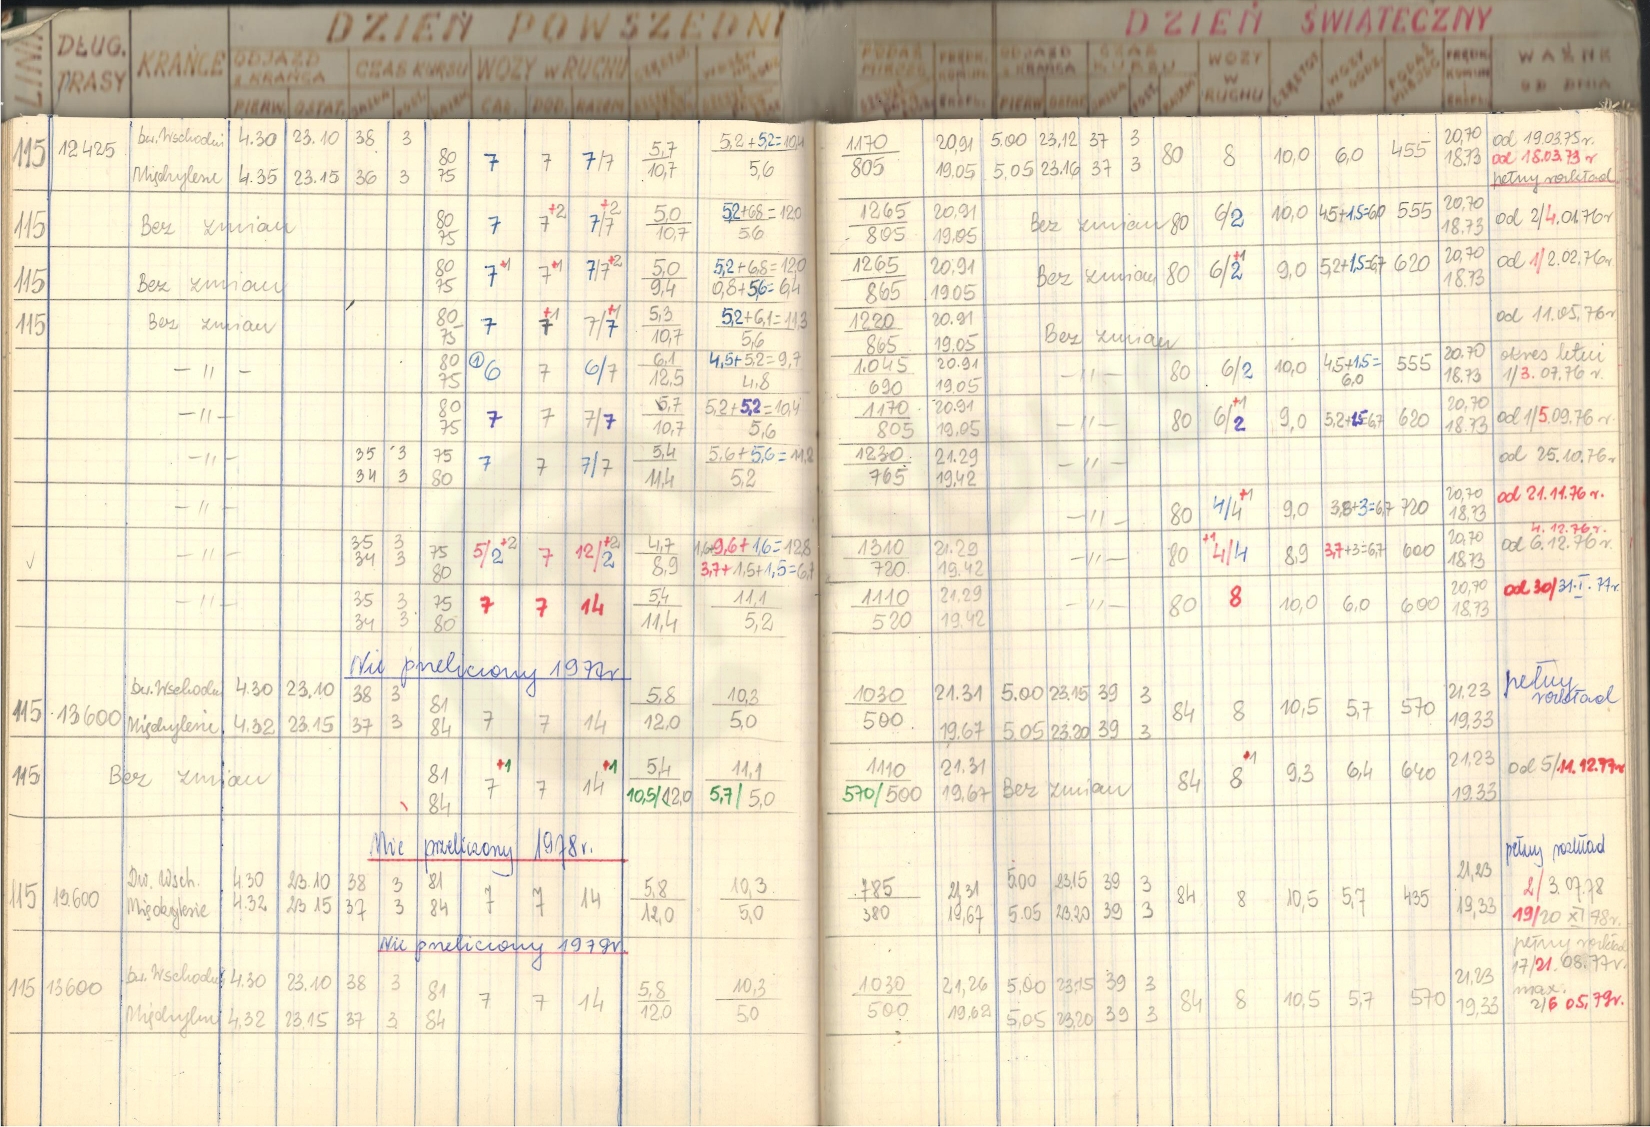 DZIEŃ POWSZEDNI DZIEŃ ŚWIĄTECZNY
LINIA DŁUG. TRASY KRAŃCE ODJAZD Z KRAŃCA CZAS KURSU WOZY W RUCHU
PIERW. OSTAT. CAŁ. DOD. RAZEM
ODJAZD Z KRAŃCA CZAS KURSU WOZY W RUCHU WAŻNE OD DNIA
PIERW. OSTAT.
115 12425 Dw. Wschodni 4.30 23.10 38 3 80 7 7 7/7 5,7 5,2+5,2=10,4 1170 20,91 5.00 23,12 37 3 80 8 10,0 6,0 455 20,70 od 19.03.75r.
Międzylesie 4.35 23.15 36 3 75 10,7 5,6 805 19.05 5,05 23.16 37 3 18.73 od 18.03.73 r
pełny rozkład
115 Bez zmian 80 7 7+2 7/7+2 5,0 5,2+6,8=12,0 1265 20.91 Bez zmian 80 6/2 10,0 4,5+1,5=6,0 555 20,70 od 2/4.01.76r
75 10,7 5,6 805 19.05 18.73
115 Bez zmian 80 7+1 7+1 7/7+2 5,0 5,2+6,8=12,0 1265 20,91 Bez zmian 80 6/2+1 9,0 5,2+1,5=6,7 620 20,70 od 1/2.02.76r
75 9,4 0,8+5,6=6,4 865 19.05 18.73
115 Bez zmian 80 7 7+1 7/7+1 5,3 5,2+6,1=11,3 1220 20.91 Bez zmian od 11.05.76r
75 10,7 5,6 865 19.05
- // - 80 ① 6 7 6/7 6,1 4,5+5,2=9,7 1.045 20.91 - // - 80 6/2 10,0 4,5+1,5= 555 20,70 okres letni
75 12,5 4,8 690 19.05 6,0 18.73 1/3.07.76 r.
- // - 80 7 7 7/7 5,7 5,2+5,2=10,4 1170 20.91 - // - 80 6/2+1 9,0 5,2+1,5=6,7 620 20,70 od 1/5.09.76 r.
75 10,7 5,6 805 19.05 18.73
- // - 35 3 75 7 7 7/7 5,4 5.6+5,6=11,2 1230 21.29 - // - od 25.10.76r
34 3 80 11,4 5,2 765 19,42
- // - - // - 80 4/4+1 9,0 3,8+3=6,7 720 20,70 od 21.11.76 r.
18.73
4.12.76 r.
- // - 35 3 75 5/2+2 7 12/2+2 4,7 1,6+9,6+1,6=12,8 1310 21.29 - // - 80 +1 4/4 8,9 3,7+3=6,7 600 20,70 od 6.12.76 r.
34 3 80 8,9 3,7+1,5+1,5=6,7 720 19.42 18.73
- // - 35 3 75 7 7 14 5,4 11,1 1110 21.29 - // - 80 8 10,0 6,0 600 20,70 od 30/31.I.77r.
34 3 80 11,4 5,2 520 19.42 18.73
Nie przeliczony 1977r.
115 13600 Dw. Wschodni 4.30 23,10 38 3 81 7 7 14 5,8 10,3 1030 21.31 5.00 23.15 39 3 84 8 10,5 5,7 570 21.23 pełny rozkład
Międzylesie 4.32 23.15 37 3 84 12,0 5,0 500 19,67 5.05 23.20 39 3 19,33
115 Bez zmian 81 7+1 7 14+1 5,4 11,1 1110 21.31 Bez zmian 84 8+1 9,3 6,4 640 21,23 od 5/11.12.77r
84 10,5/12,0 5,7/5,0 570/500 19,67 19.33
Nie przeliczony 1978r.
pełny rozkład
115 13600 Dw. Wsch. 4.30 23.10 38 3 81 7 7 14 5,8 10,3 785 21,31 5.00 23.15 39 3 84 8 10,5 5,7 435 21,23 2/3.07.78
Międzylesie 4.32 23 15 37 3 84 12,0 5,0 380 19,67 5.05 23.20 39 3 19,33 19/20 XI 78r.
Nie przeliczony 1979r.
pełny rozkład
115 13600 Dw. Wschodni 4.30 23.10 38 3 81 7 7 14 5,8 10,3 1030 21,26 5,00 23.15 39 3 84 8 10,5 5,7 570 21,23 17/21.08.77r.
max.
Międzylesie 4,32 23.15 37 3 84 12,0 5,0 500 19,62 5,05 23,20 39 3 19.33 2/6 05,79r.